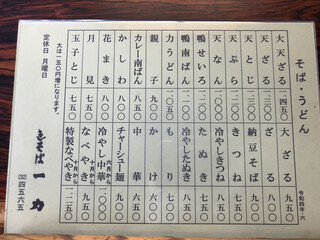 そば・うどん
令和四年・六
大天ざる 一四五〇
天ざる 一三〇〇
天とじ 一二〇〇
天ぷら 一二〇〇
天なん 一二五〇
鴨せいろ 一二〇〇
鴨南ばん 一二〇〇
力うどん 一〇五〇
親子 九五〇
カレー南ばん 九五〇
かしわ 八〇〇
花まき 八〇〇
月見 七五〇
玉子とじ 七五〇
大ざる 九五〇
ざる 七五〇
納豆そば 九〇〇
きつね 七五〇
冷やしきつね 八五〇
たぬき 七五〇
冷やしたぬき 八五〇
もり 七〇〇
かけ 六五〇
中華 六五〇
チャーシュー麺 九〇〇
冷やし中華 六月から 一〇〇〇
なべやき 十月から 九五〇
特製なべやき 十月から 一二五〇
大は一五〇円増になります。
定休日 月曜日
そば 一力
(32)四五六五